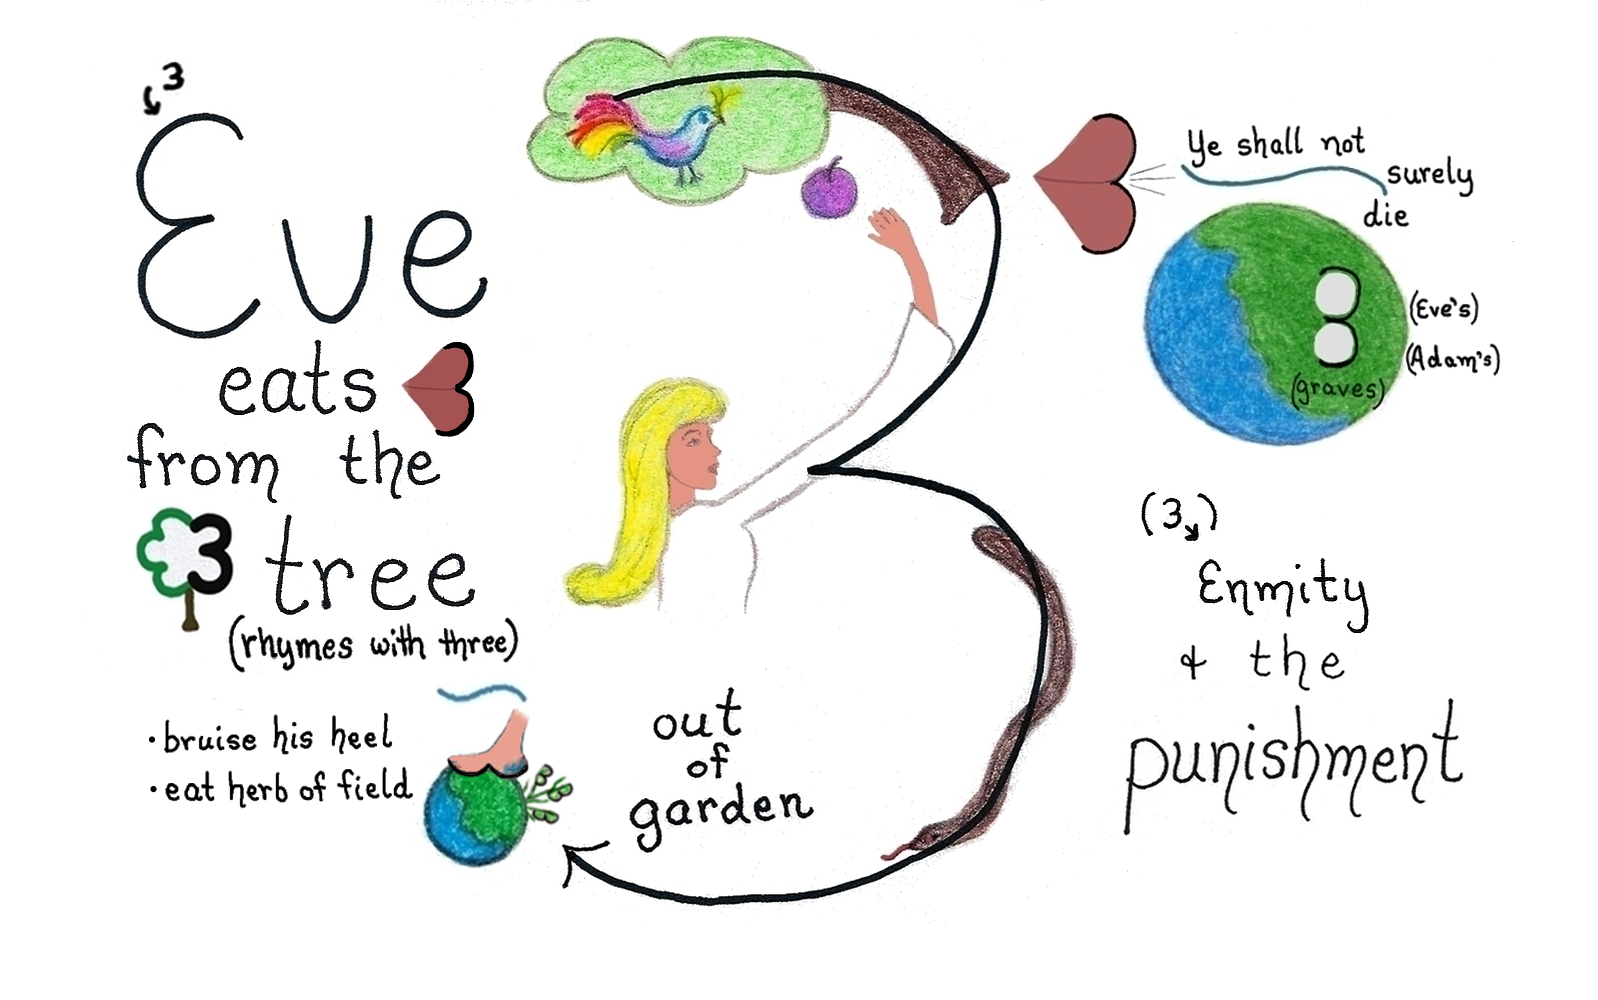 3
Eve
eats
from the
tree
(rhymes with three)
• bruise his heel
• eat herb of field
out
of
garden
Ye shall not
surely
die
(Eve's)
(Adam's)
(graves)
(3)
Enmity
& the
punishment